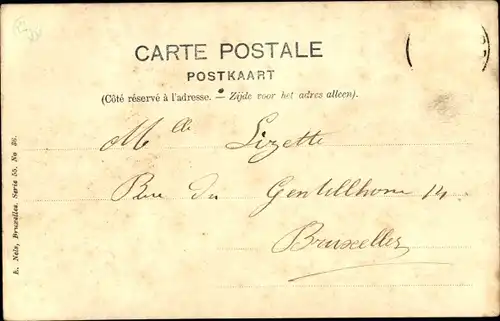 CARTE POSTALE
POSTKAART
(Côté réservé à l'adresse. — Zijde voor het adres alleen).
Mlle Lizette
Rue du Gentillhome 14
Bruxelles
E. Nels, Bruxelles. Serie 55. No 36.